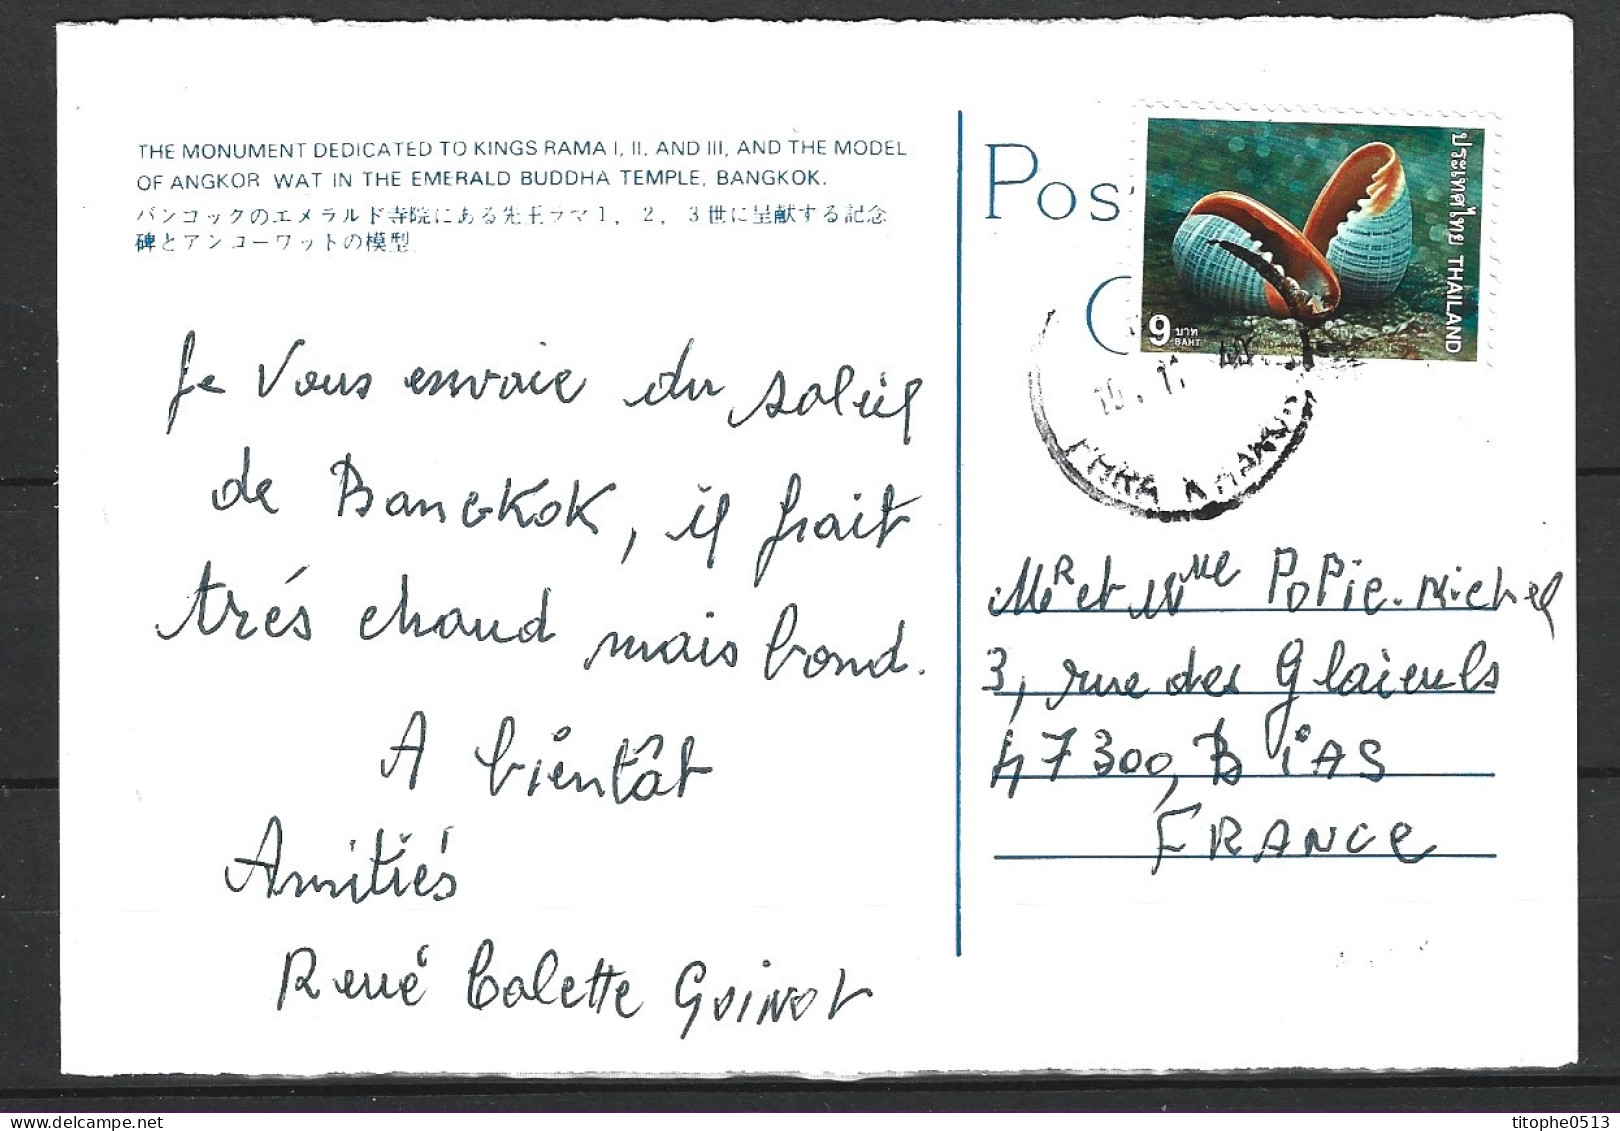 THE MONUMENT DEDICATED TO KINGS RAMA I, II, AND III, AND THE MODEL
OF ANGKOR WAT IN THE EMERALD BUDDHA TEMPLE, BANGKOK.
バンコックのエメラルド寺院にある先王ラマ1, 2, 3世に呈献する記念
碑とアンコーワットの模型
Je Vous envoie du soleil
de Bangkok, il frait
trés chaud mais bond.
A bientôt
Amitiés
René Colette Goinot
Pos
C
ประเทศไทย THAILAND
9 บาท
BAHT
PHRA KHANONG
MR et Mme POPie. Michel
3, rue des Glaieuls
47300, BiAS
FRANCE
titophe0513